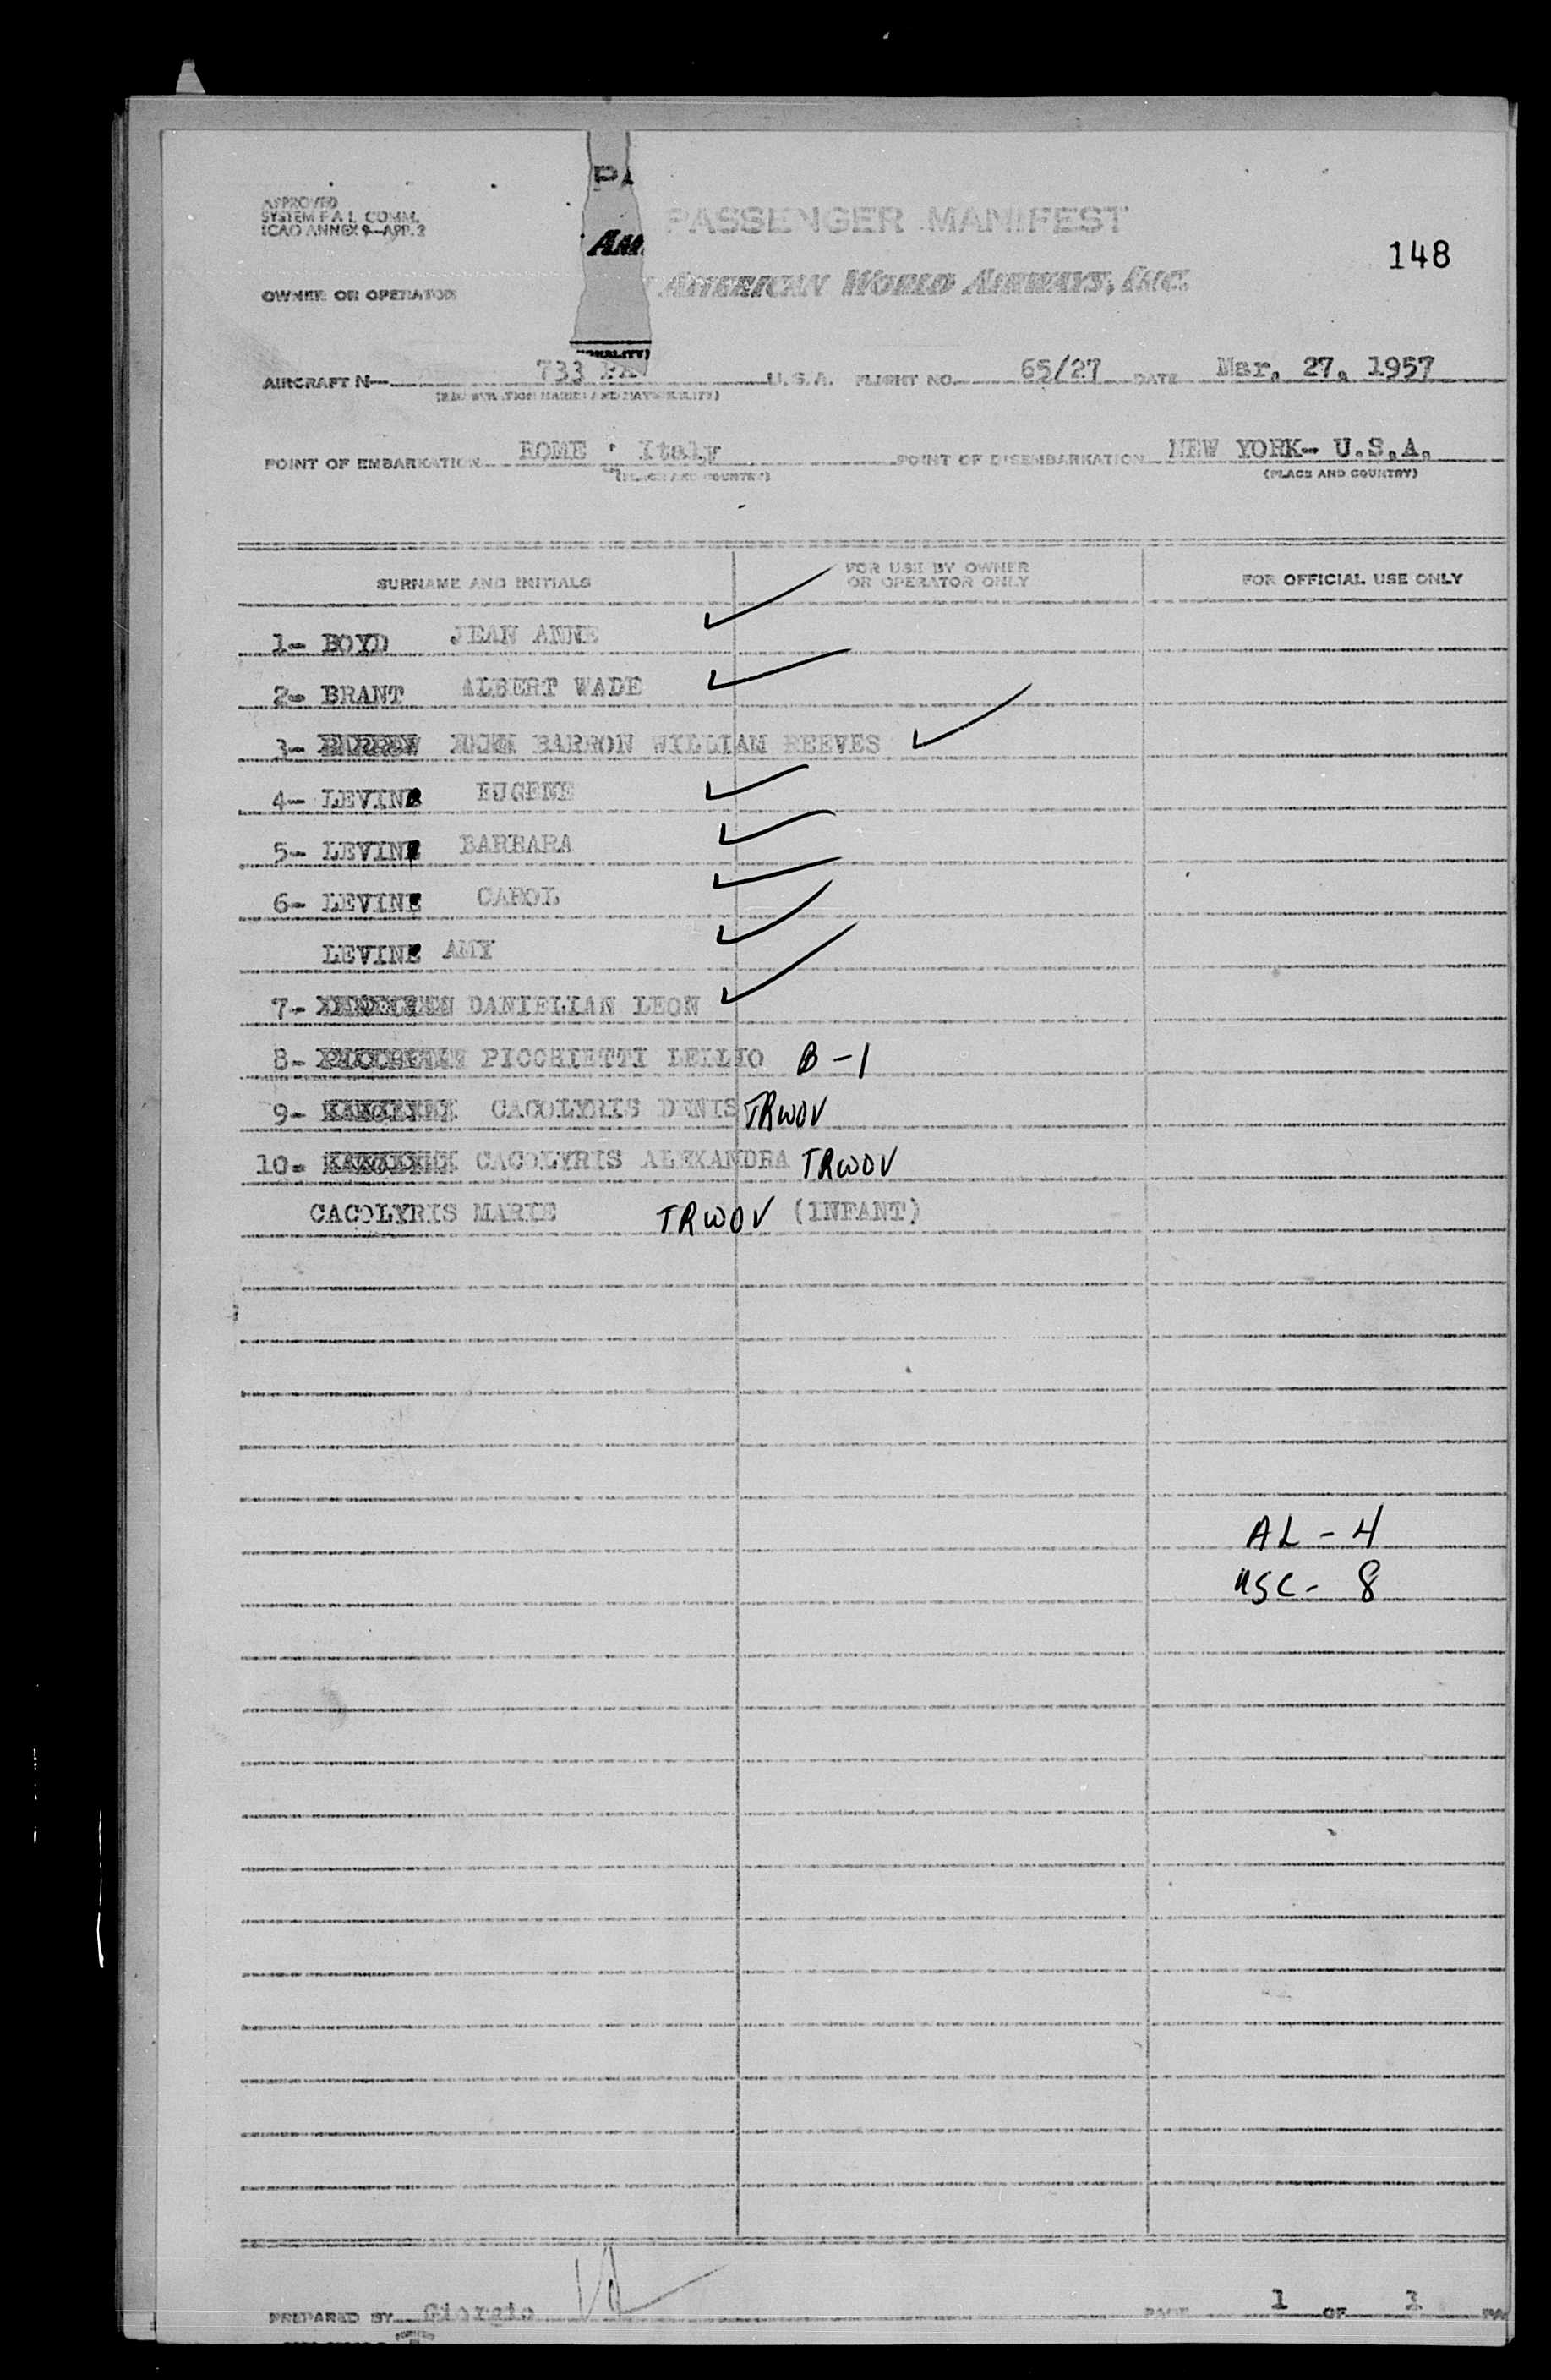 PA
APPROVED
SYSTEM F A L COMM.
ICAO ANNEX 9—APP. 2
PASSENGER MANIFEST
148
AM
AMERICAN WORLD AIRWAYS, INC.
OWNER OR OPERATOR
ONALITY)
AIRCRAFT N— 733 PA U. S. A. FLIGHT NO. 65/27 DATE Mar. 27. 1957
(REGISTRATION MARKS AND NATIONALITY)
POINT OF EMBARKATION ROME Italy POINT OF DISEMBARKATION NEW YORK- U.S.A.
(PLACE AND COUNTRY) (PLACE AND COUNTRY)
SURNAME AND INITIALS FOR USE BY OWNER OR OPERATOR ONLY FOR OFFICIAL USE ONLY
1- BOYD JEAN ANNE ✓
2- BRANT ALBERT WADE ✓
3- BARRON WILLIAM REEVES ✓
4- LEVINE EUGENE ✓
5- LEVINE BARBARA ✓
6- LEVINE CAROL ✓
LEVINE AMY ✓
7- DANIELIAN LEON ✓
8- PICCHIETTI LELLIO B-1
9- CACOLYRIS DENIS TRWOV
10- CACOLYRIS ALEXANDRA TRWOV
CACOLYRIS MARIE TRWOV (INFANT)
AL - 4
USC - 8
PREPARED BY Giorgio
PAGE 1 OF 3 PA